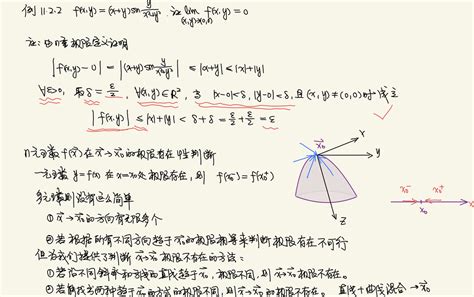 例 11.2.2 f(x,y)=(x+y)sin y/(x²+y²) 证 lim (x,y)→(0,0) f(x,y)=0
证: 由n重极限定义证明
|f(x,y)-0| = |(x+y)sin y/(x²+y²)| ≤ |x+y| ≤ |x|+|y|
∀ε>0, 取δ=ε/2, ∀(x,y)∈R², 当 |x-0|<δ, |y-0|<δ, 且(x,y)≠(0,0)时成立
|f(x,y)| ≤ |x|+|y| < δ+δ = ε/2+ε/2 = ε
n元函数 f(x)在x→x₀的极限存在性判断
一元函数 y=f(x) 在x=x₀处极限存在, 则 f(x₀⁻)=f(x₀⁺)
多元函数则没有这么简单
① x→x₀的方向有无限多个
②若根据所有不同方向趋于x₀的极限相等来判断极限存在不可行
但为我们提供了判断x→x₀极限不存在的方法:
①若沿不同斜率和方线的直线趋于x₀, 极限不同, 则x→x₀极限不存在。
②若曲线 两种趋于x₀的方式的极限不同, 则x→x₀极限不存在。 直线+曲线混合 →x₀
x₀
x
y
z
x₀⁻
x₀⁺
x₀
x